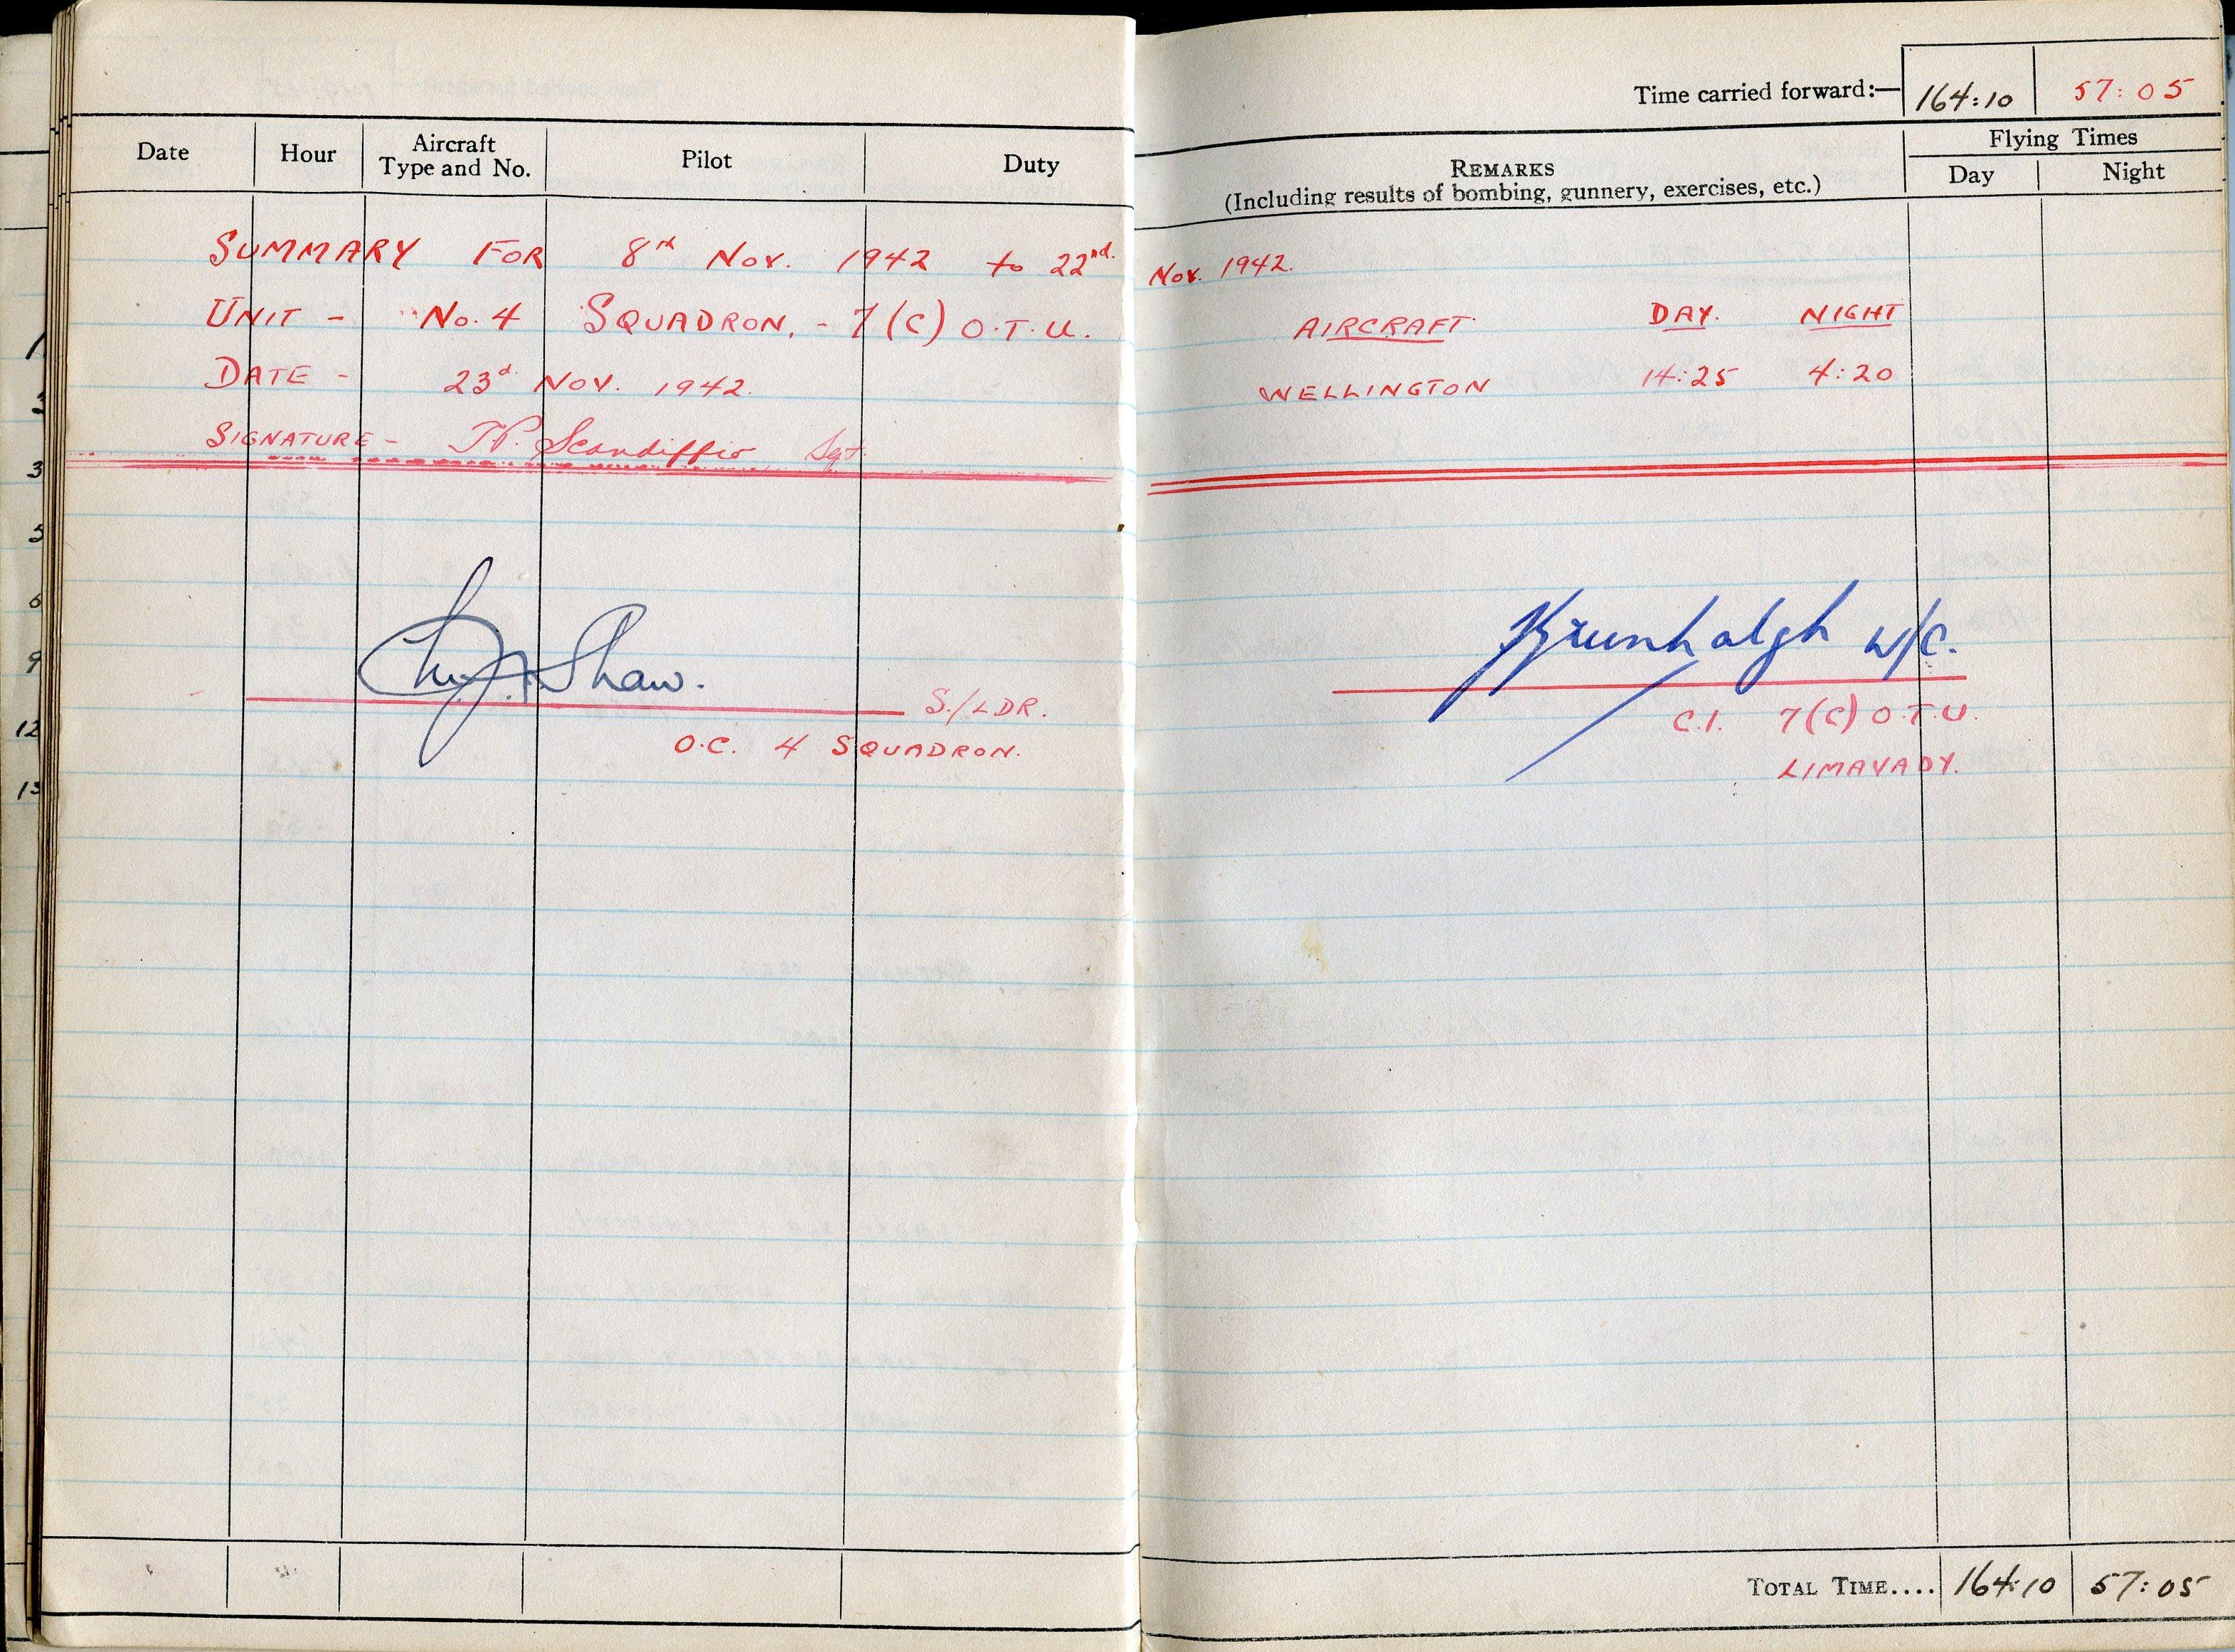 Time carried forward:— 164:10 57:05
Date Hour Aircraft Type and No. Pilot Duty
REMARKS
(Including results of bombing, gunnery, exercises, etc.)
Flying Times
Day Night
SUMMARY FOR 8th Nov. 1942 to 22nd. Nov. 1942.
UNIT - No. 4 SQUADRON. - 7(C) O.T.U.
AIRCRAFT DAY. NIGHT
DATE - 23d NOV. 1942.
WELLINGTON 14:25 4:20
SIGNATURE - Scandiffio Sgt.
Shaw.
W/C.
S./LDR.
O.C. 4 SQUADRON.
C.I. 7(C) O.T.U.
LIMAVADY.
3
5
6
9
12
13
TOTAL TIME.... 164:10 57:05